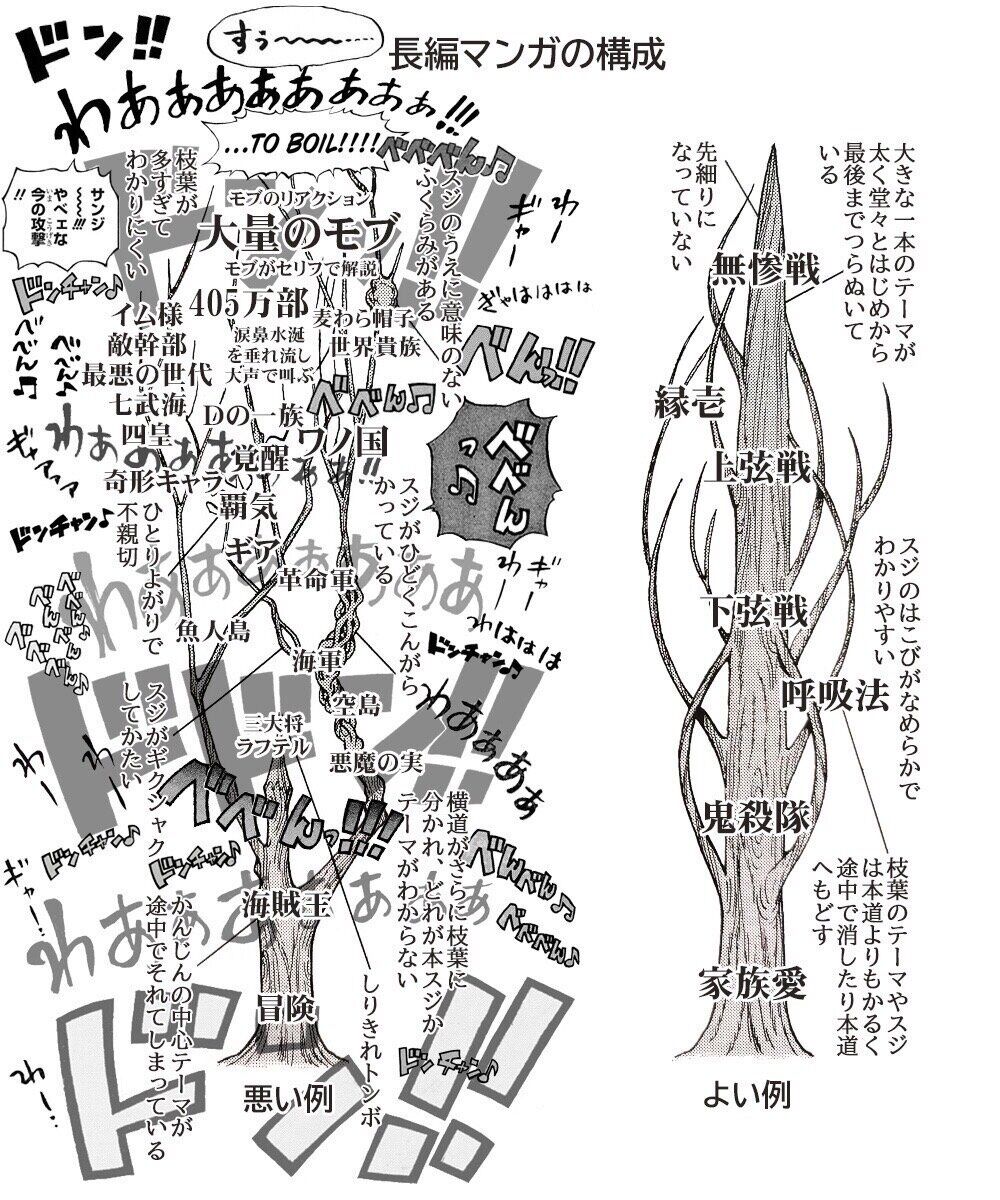 長編マンガの構成
ドン!!
すぅ〜〜〜……
わあぁぁぁあぁぁぁぁ!!!
...TO BOIL!!!!
べべべん♪
サンジ
〜〜〜!!!
やベェな
今の攻撃
いま
こうげき
!!
枝葉が
多すぎて
わかりにくい
モブのリアクション
大量のモブ
モブがセリフで解説
405万部
涙鼻水涎
を垂れ流し
大声で叫ぶ
麦わら帽子
世界貴族
スジのうえに意味のない
ふくらみがある
ぎゃー
わー
ぎゃははははは
べんっ!!
ドンチャン♪
イム様
敵幹部
最悪の世代
七武海
四皇
奇形キャラ
Dの一族
覚醒
ワノ国
べべん♫
覇気
ギア
革命軍
魚人島
海軍
空島
三大将
ラフテル
悪魔の実
ギャアァァ
わあぁぁぁぁぁ!!
べべんっ♫
ドンチャン♪
ひとりよがりで
不親切
スジがひどくこんがら
かっている
わー
ギャー
わははは
ドンチャン♫
わあぁぁぁぁぁぁぁぁ
スジがギクシャク
してかたい
ドドン!!
わあぁあぁぁ
べべんっ!!!
横道がさらに枝葉に
分かれ、どれが本スジか
テーマがわからない
ドンチャン♪
ドンチャン♪
べんべん♪
べべべん♪
海賊王
かんじんの中心テーマが
途中でそれてしまっている
しりきれトンボ
冒険
ドンチャン♫
ドン!!
わー…
悪い例
先細りに
なっていない
大きな一本のテーマが
太く堂々とはじめから
最後までつらぬいて
いる
無惨戦
縁壱
上弦戦
スジのはこびがなめらかで
わかりやすい
下弦戦
呼吸法
鬼殺隊
枝葉のテーマやスジ
は本道よりもかるく
途中で消したり本道
へもどす
家族愛
よい例